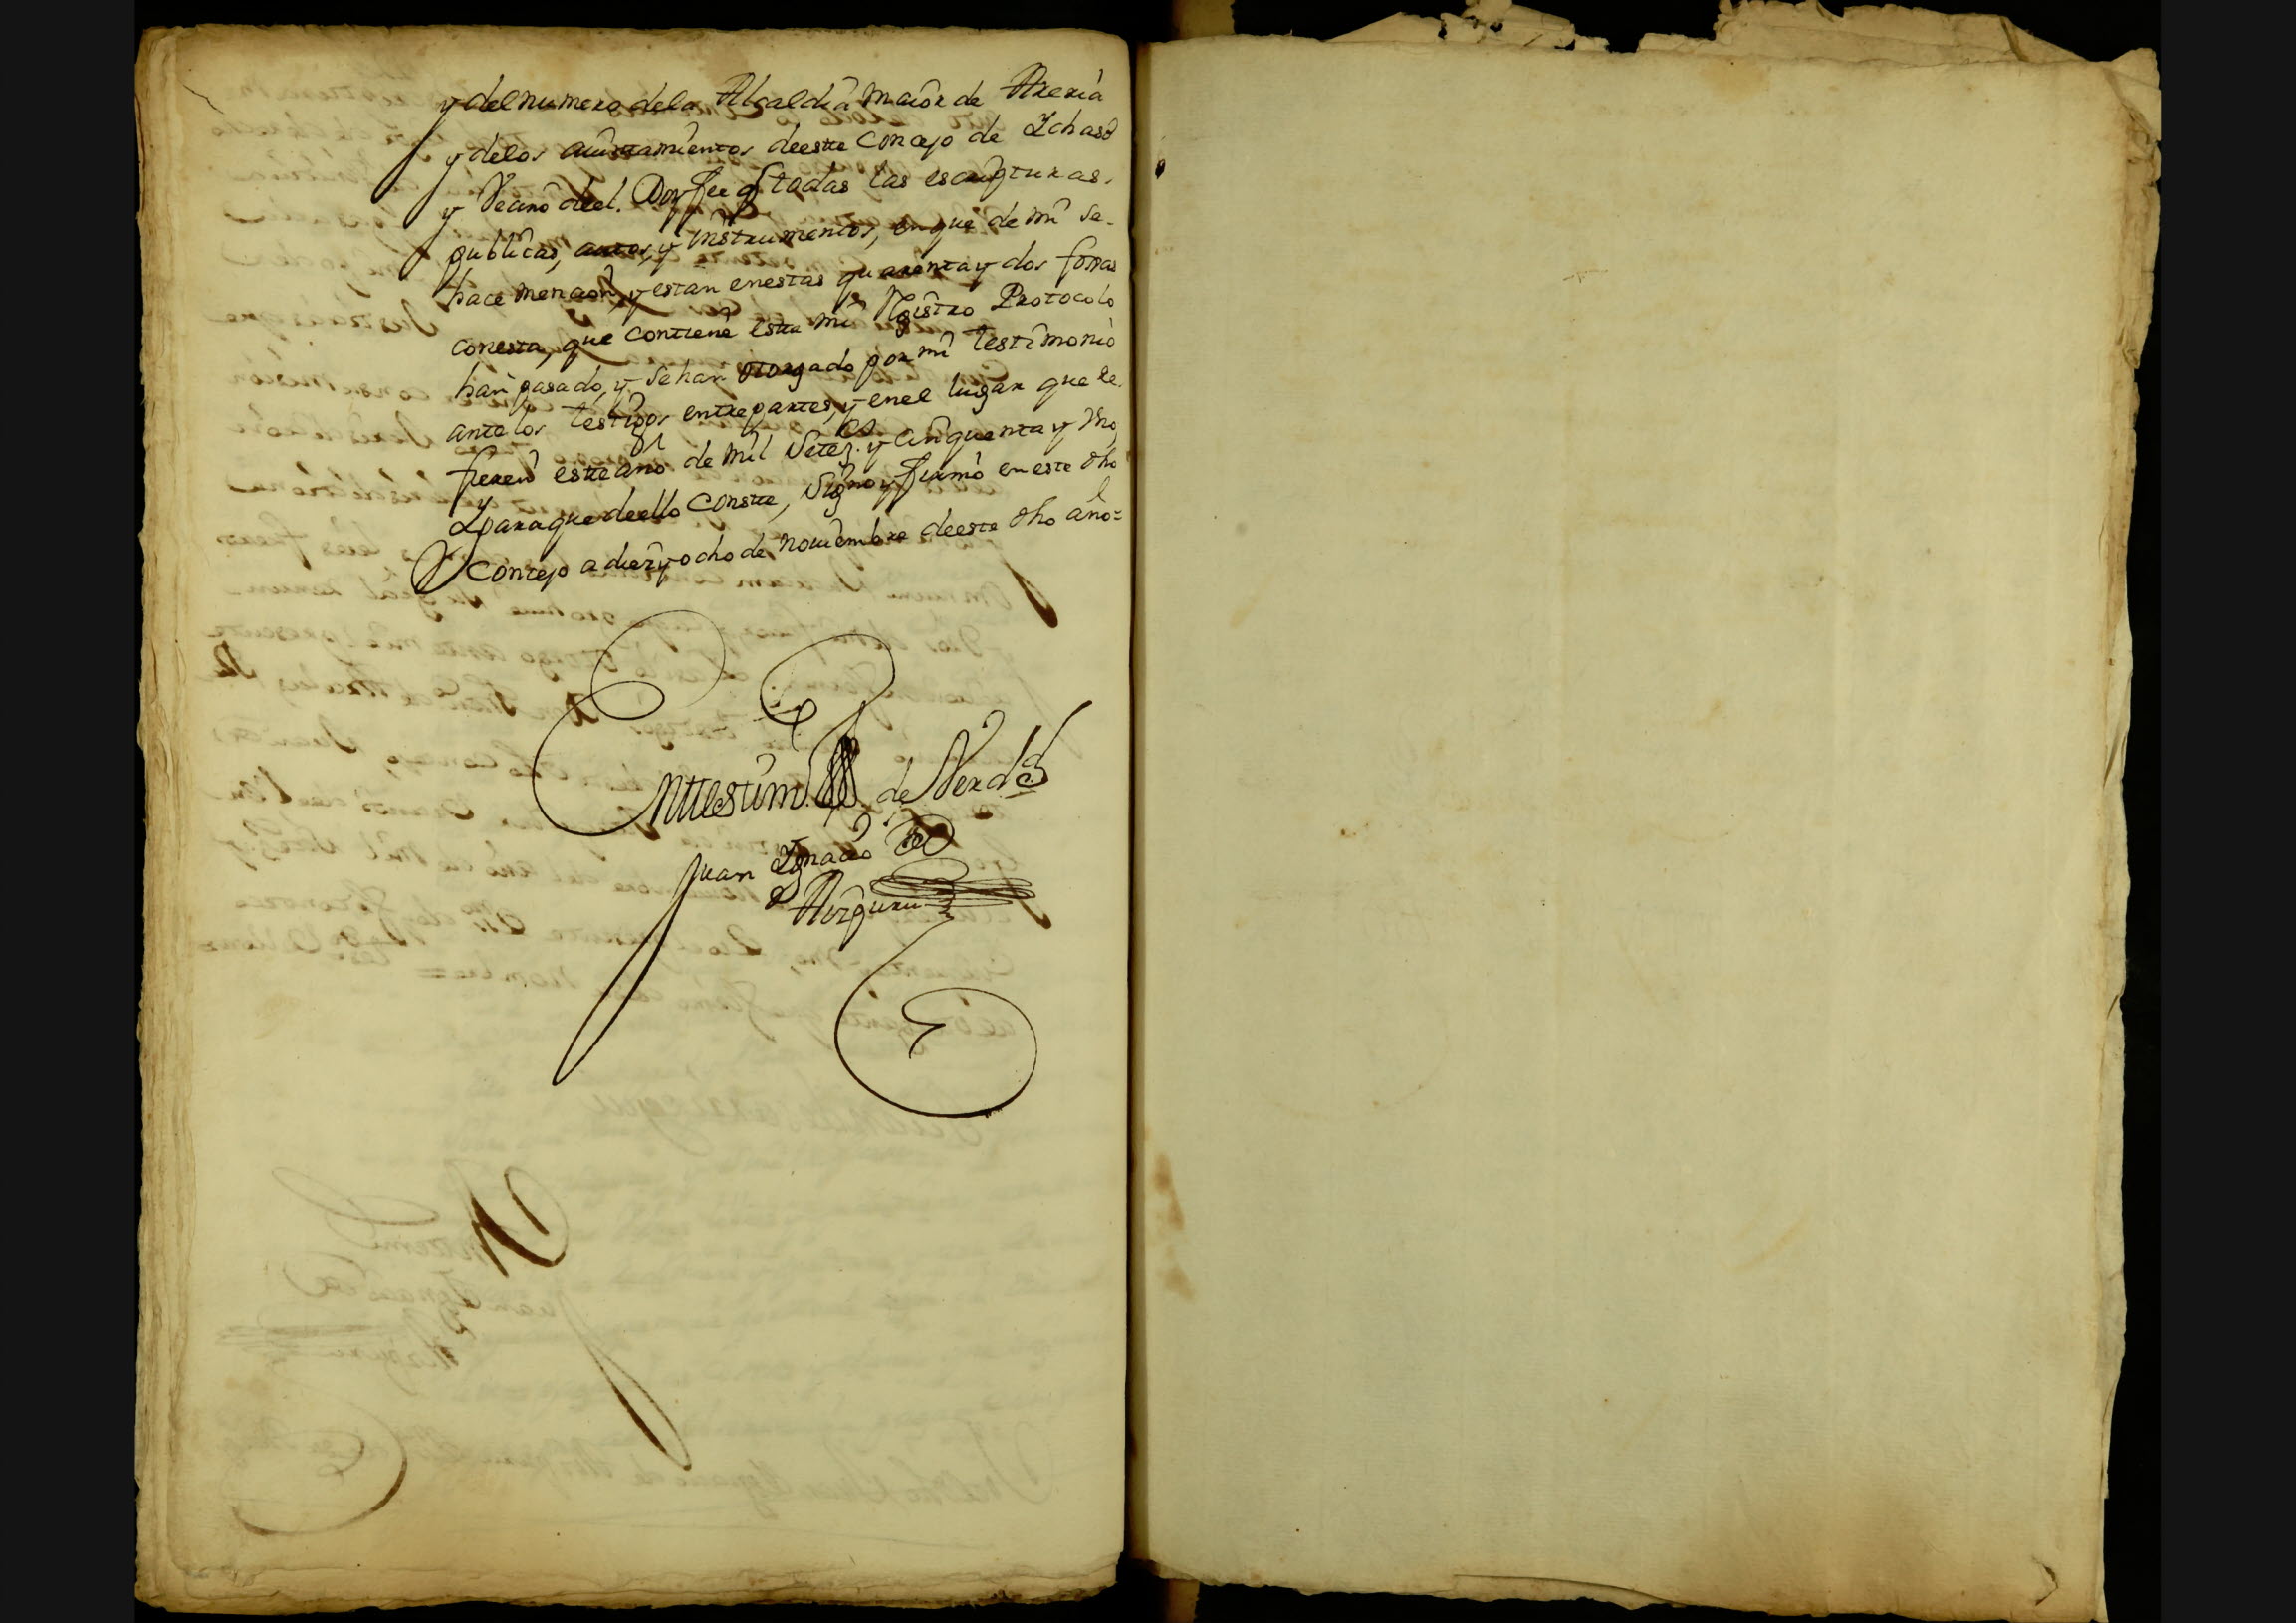 y del numero dela Alcaldia maior de Areria
y delos aiuntamientos deeste Concejo de Ychaso
y Vecino deel. Doy fee q̃ todas las escripturas.
publicas, autos, y instrumentos, en que de mi se-
hace mencion, y estan enestas quarenta y dos fojas
conesta, que contiene este mi Registro Protocolo
han pasado, y se han otorgado por mi testimonio
ante los testigos, entrepartes, y enel lugar que re
fieren este año de mil setez.os y cinquenta y Vno
y para que deello Conste, signo y firmo en este dho
Concejo a diez y ocho de noviembre deeste dho año=
En testim.o de Verd.d
Juan Ygnacio de
Aizpuru